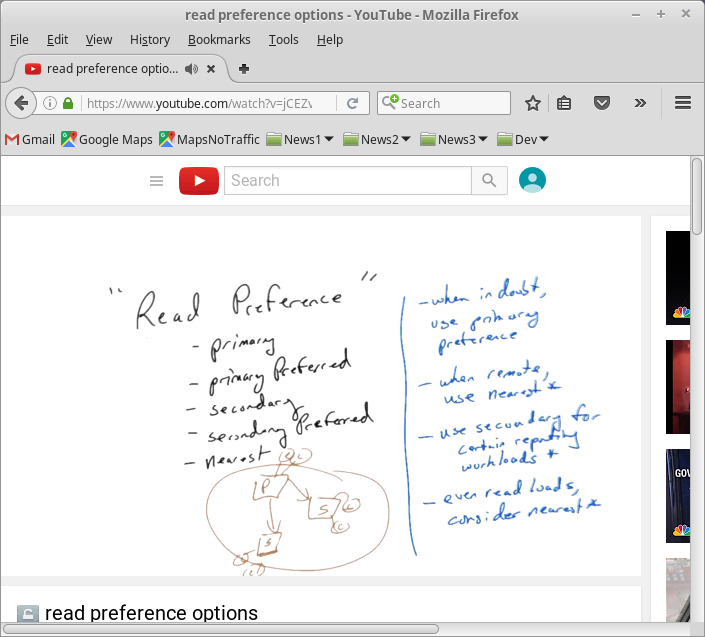 read preference options - YouTube - Mozilla Firefox
File Edit View History Bookmarks Tools Help
read preference optio...
https://www.youtube.com/watch?v=jCEZv
Search
Gmail Google Maps MapsNoTraffic News1 News2 News3 Dev
Search
"Read Preference"
- primary
- primary Preferred
- secondary
- secondary Preferred
- nearest
P
S
S
- when in doubt,
use primary
preference
- when remote,
use nearest *
- use secondary for
certain reporting
workloads *
- even read loads,
consider nearest *
GOV
read preference options